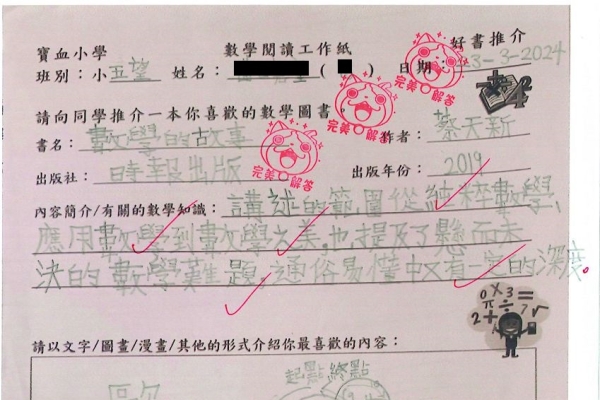 寶血小學 數學閱讀工作紙 好書推介
班別：小五望 姓名： ( ) 日期：3-3-2024
完美 解答
完美 解答
請向同學推介一本你喜歡的數學圖書
書名：數學的故事 作者：蔡天新
完美 解答
出版社：時報出版 出版年份：2019
內容簡介/有關的數學知識：講述的範圍從純粹數學、
應用數學到數學之美,也提及了懸而未
決的數學難題,通俗易懂中又有一定的深度。
請以文字/圖畫/漫畫/其他的形式介紹你最喜歡的內容：
起點 終點